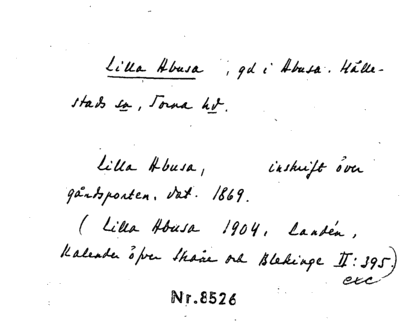 Lilla Abusa, gd i Abusa. Hälle-
stads sn, Torna hd.
Lilla Abusa, inskrift över
gårdsporten, dat. 1869.
(Lilla Abusa 1904, Landén,
Kalender öfver Skåne och Blekinge II:395.)
exc
Nr.8526